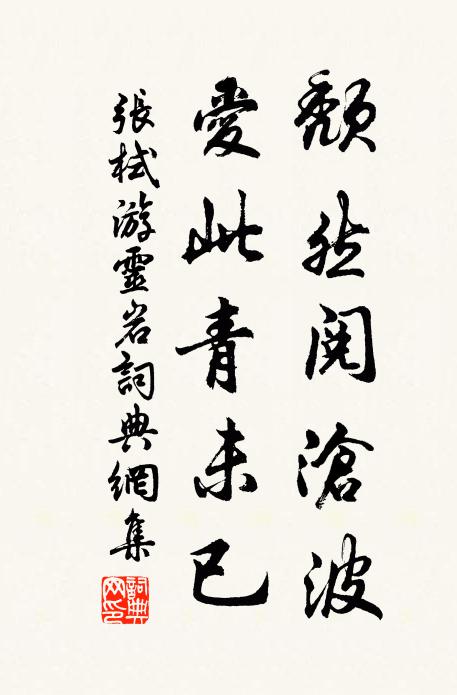 頹然閱滄波
愛此青未已
張栻游靈岩詞典網集
詞典網印